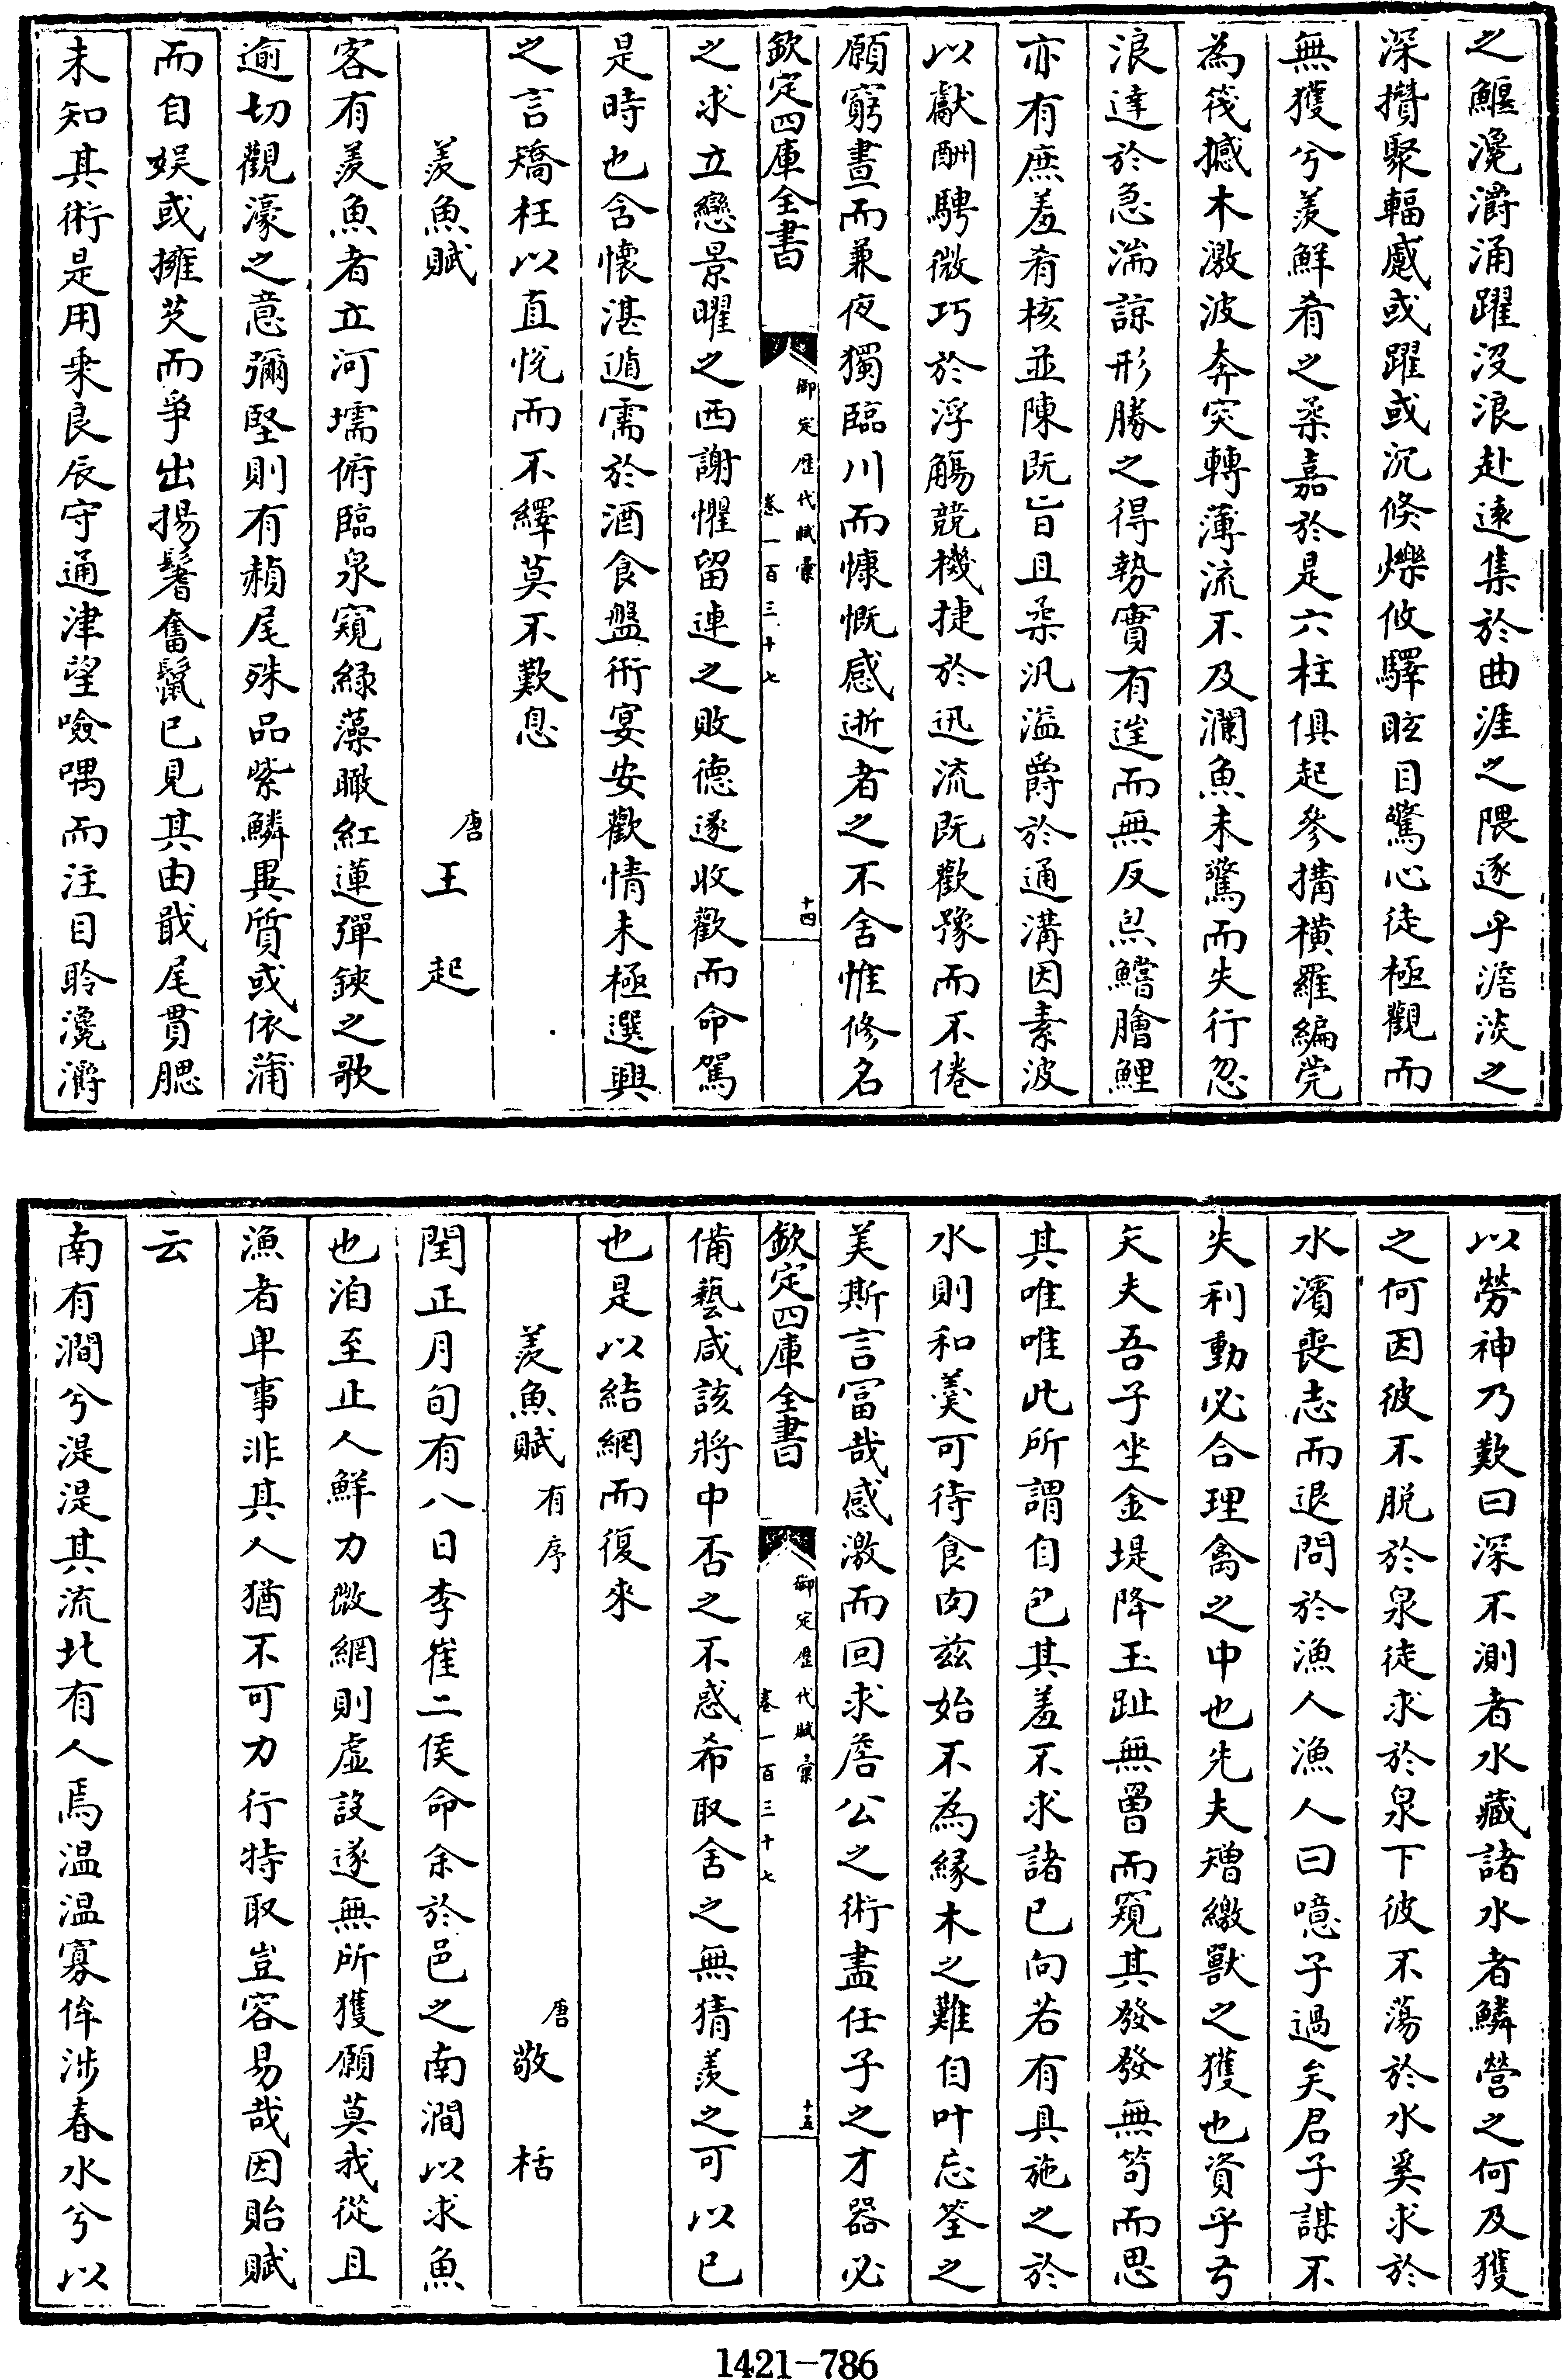 之鰋瀺灂涌躍沒浪赴遠集於曲涯之隈逐乎澹淡之
深攢聚輻蹙或躍或沉倏爍攸驛眩目驚心徒極觀而
無獲兮羡鮮肴之柔嘉於是六柱俱起參搆橫羅編莞
為筏撼木激波奔突轉薄流不及瀾魚未驚而失行忽
浪達於急湍諒形勝之得勢實有逹而無反炰鱨膾鯉
亦有庶羞肴核並陳既旨且柔汎溢爵於通溝因素波
以獻酬騁微巧於浮觴競機捷於迅流既歡豫而不倦
願窮晝而兼夜獨臨川而慷慨感逝者之不舍惟修名
欽定四庫全書
御定歴代賦彙
卷一百三十七
十四
之求立戀景曜之西謝懼留連之敗德遂收歡而命駕
是時也含懷湛遁需於酒食盤衎宴安歡情未極選興
之言矯枉以直悦而不繹莫不歎息
羡魚賦
唐王起
客有羡魚者立河壖俯臨泉窺緑藻瞰紅蓮彈鋏之歌
逾切觀濠之意彌堅則有赬尾殊品紫鱗異質或依蒲
而自娱或擁芡而爭出揚鬐奮鬛已見其由戢尾貫腮
未知其術是用乘良辰守通津望噞喁而注目聆瀺灂
以勞神乃歎曰深不測者水藏諸水者鱗營之何及獲
之何因彼不脱於泉徒求於泉下彼不蕩於水奚求於
水濱喪志而退問於漁人漁人曰噫子過矣君子謀不
失利動必合理禽之中也先夫矰繳獸之獲也資乎弓
矢夫吾子坐金堤降玉趾無罾而窺其發發無笱而思
其唯唯此所謂自已其羞不求諸已向若有具施之於
水則和羮可待食肉兹始不為緣木之難自叶忘筌之
美斯言冨哉感激而回求詹公之術盡任子之才器必
欽定四庫全書
御定歴代賦彙
卷一百三十七
十五
備藝咸該將中否之不惑希取舍之無猜羡之可以已
也是以結網而復來
羡魚賦有序
唐敬括
閏正月旬有八日李崔二侯命余於邑之南澗以求魚
也洎至止人鮮力微網則虛設遂無所獲願莫我從且
漁者卑事非其人猶不可力行特取豈容易哉因貽賦
云
南有澗兮湜湜其流北有人焉温温寡侔涉春水兮以
1421-786